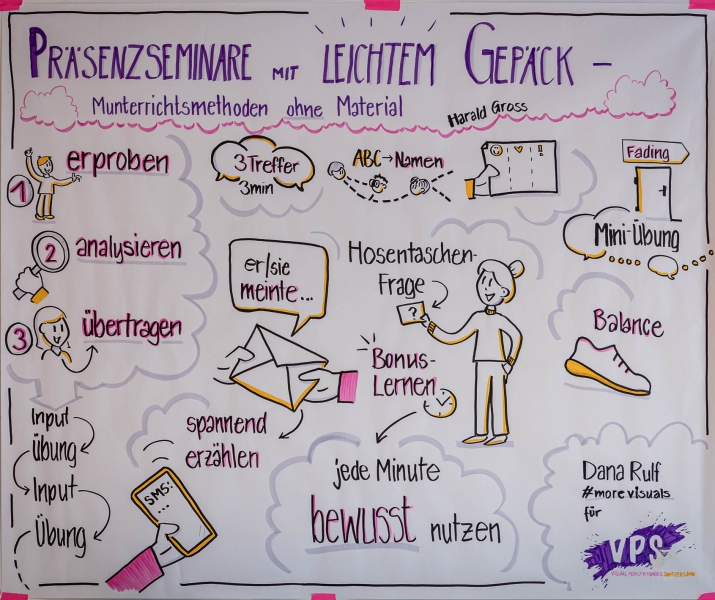 PRÄSENZSEMINARE MIT LEICHTEM GEPÄCK –
Munterrichtsmethoden ohne Material
Harald Gross
1 erproben
2 analysieren
3 übertragen
Input
Übung
Input
Übung
3 Treffer
3min
ABC → Namen
!
Fading
Mini-Übung
er/sie
meinte...
Hosentaschen-
Frage
?
Bonus-
Lernen
Balance
spannend
erzählen
SMS:
...
jede Minute
bewusst nutzen
Dana Rulf
#more visuals
für
VPS